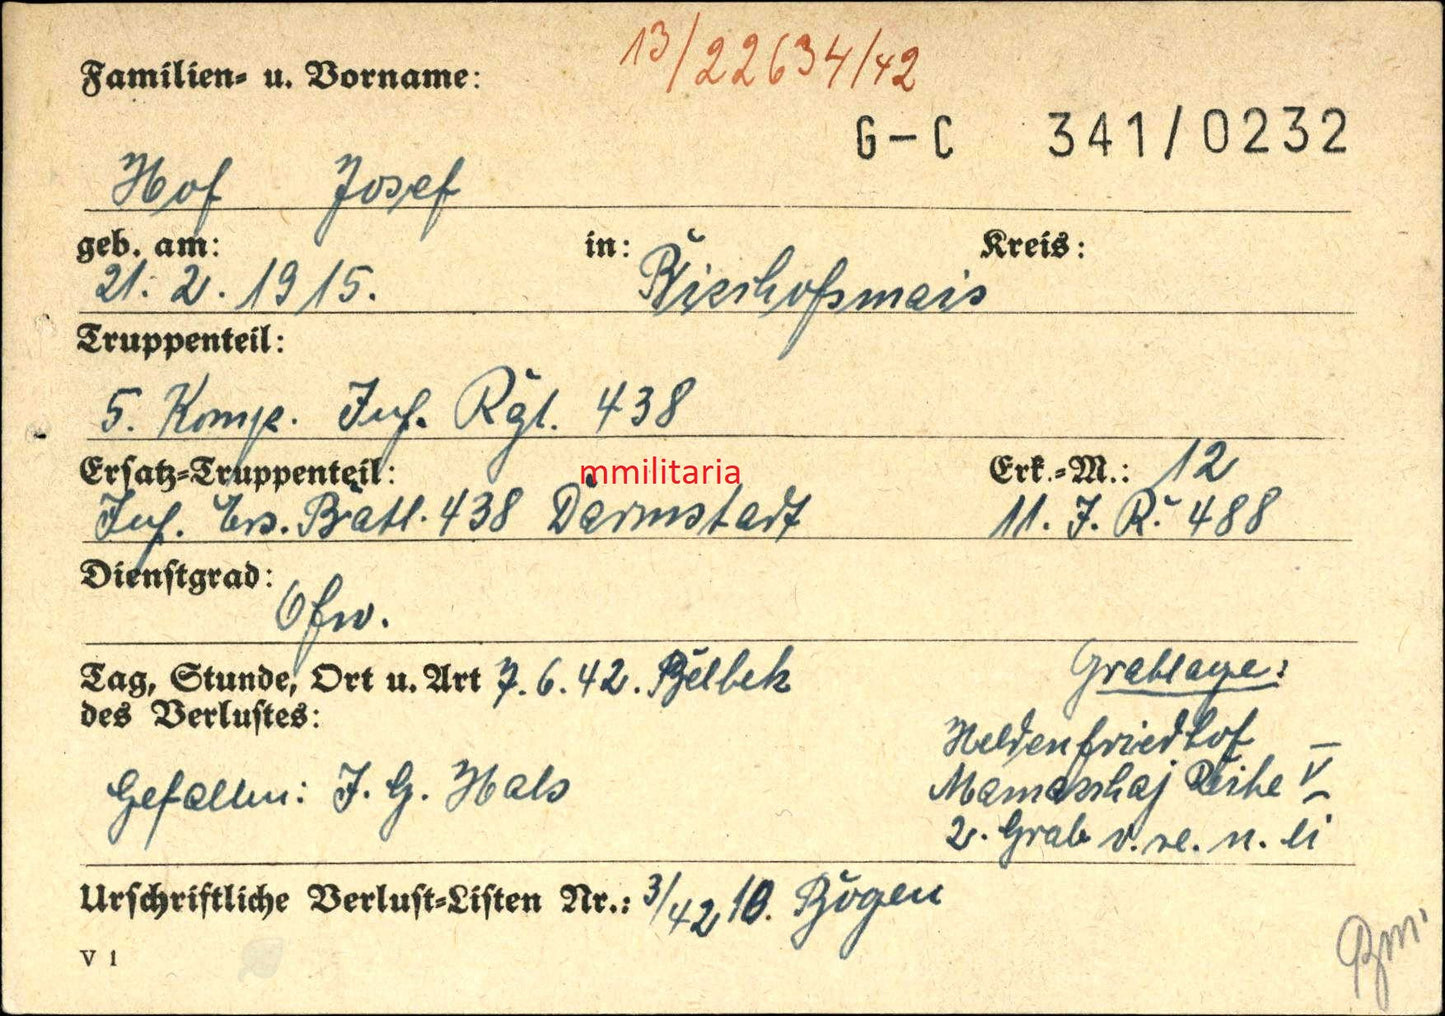 13/22634/42
Familien- u. Vorname:
G-C 341/0232
Hof Josef
geb. am: in: Kreis:
21. 2. 1915. Bischofsmais
Truppenteil:
5. Komp. Inf. Rgt. 438
Ersatz-Truppenteil: mmilitaria Erk.-M.: 12
Inf. Ers. Batl. 438 Darmstadt 11. J. R. 488
Dienstgrad:
Ofw.
Tag, Stunde, Ort u. Art 7. 6. 42. Belbek Grablage:
des Verlustes:
Heldenfriedhof
Gefallen: J. G. Hals Mamaschaj Reihe V
2. Grab v. re. n. li
Urschriftliche Verlust-Listen Nr.: 3/42 10. Bogen
V 1